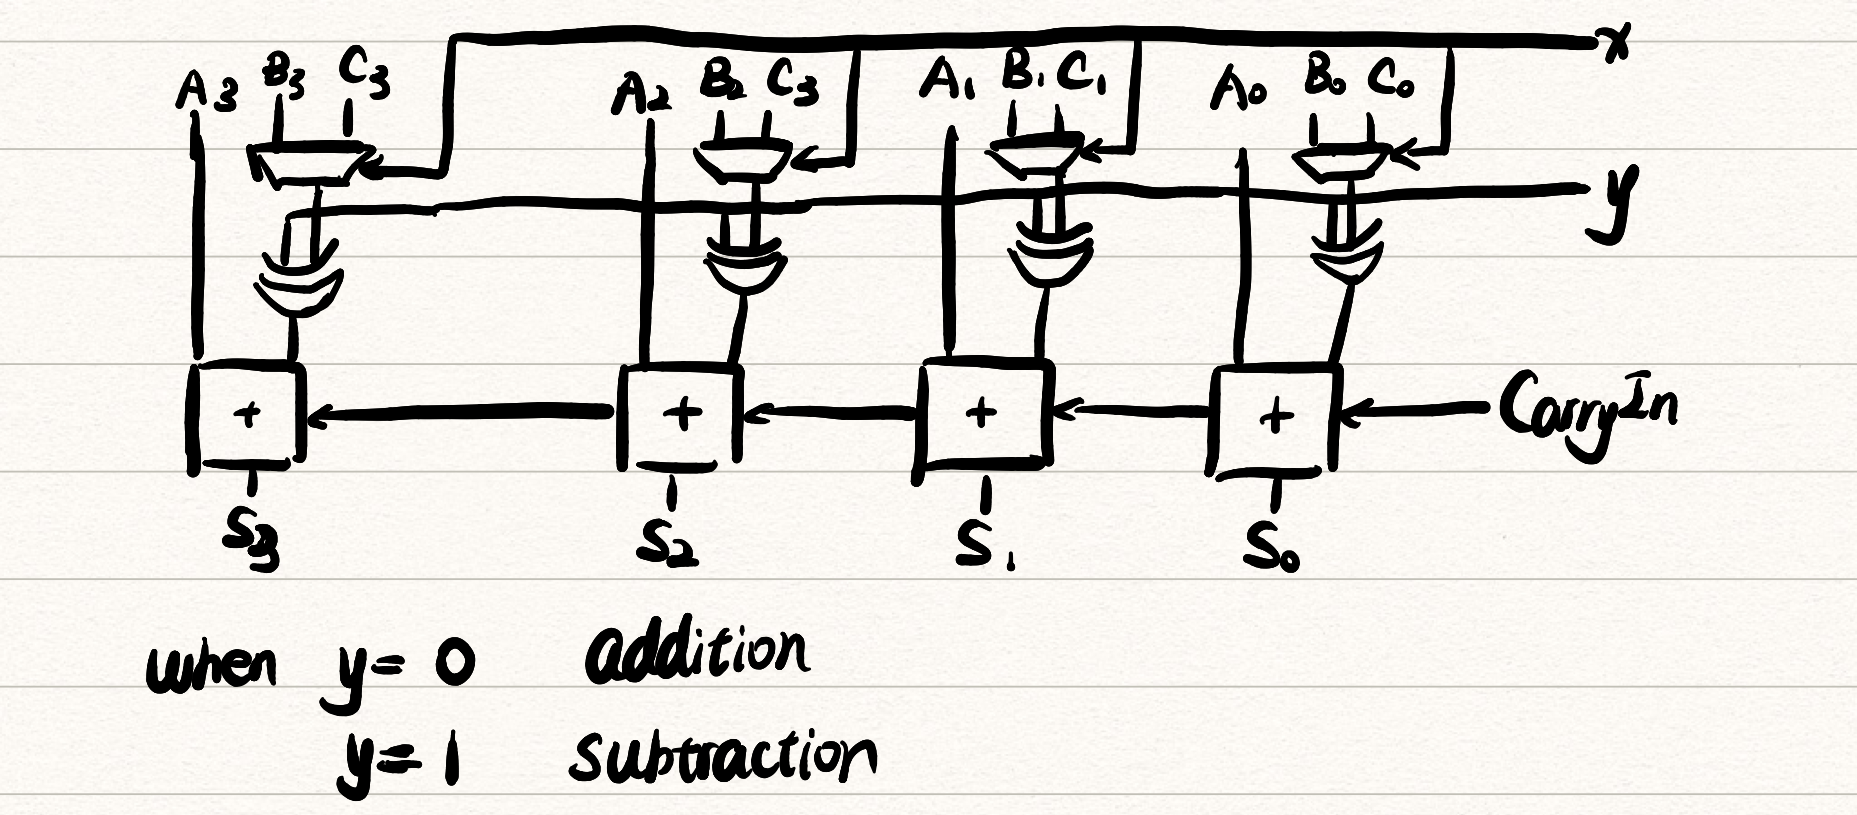 x
A3 B3 C3 A2 B2 C3 A1 B1 C1 A0 B0 C0
y
+ + + + CarryIn
S3 S2 S1 S0
when y = 0 addition
y = 1 subtraction